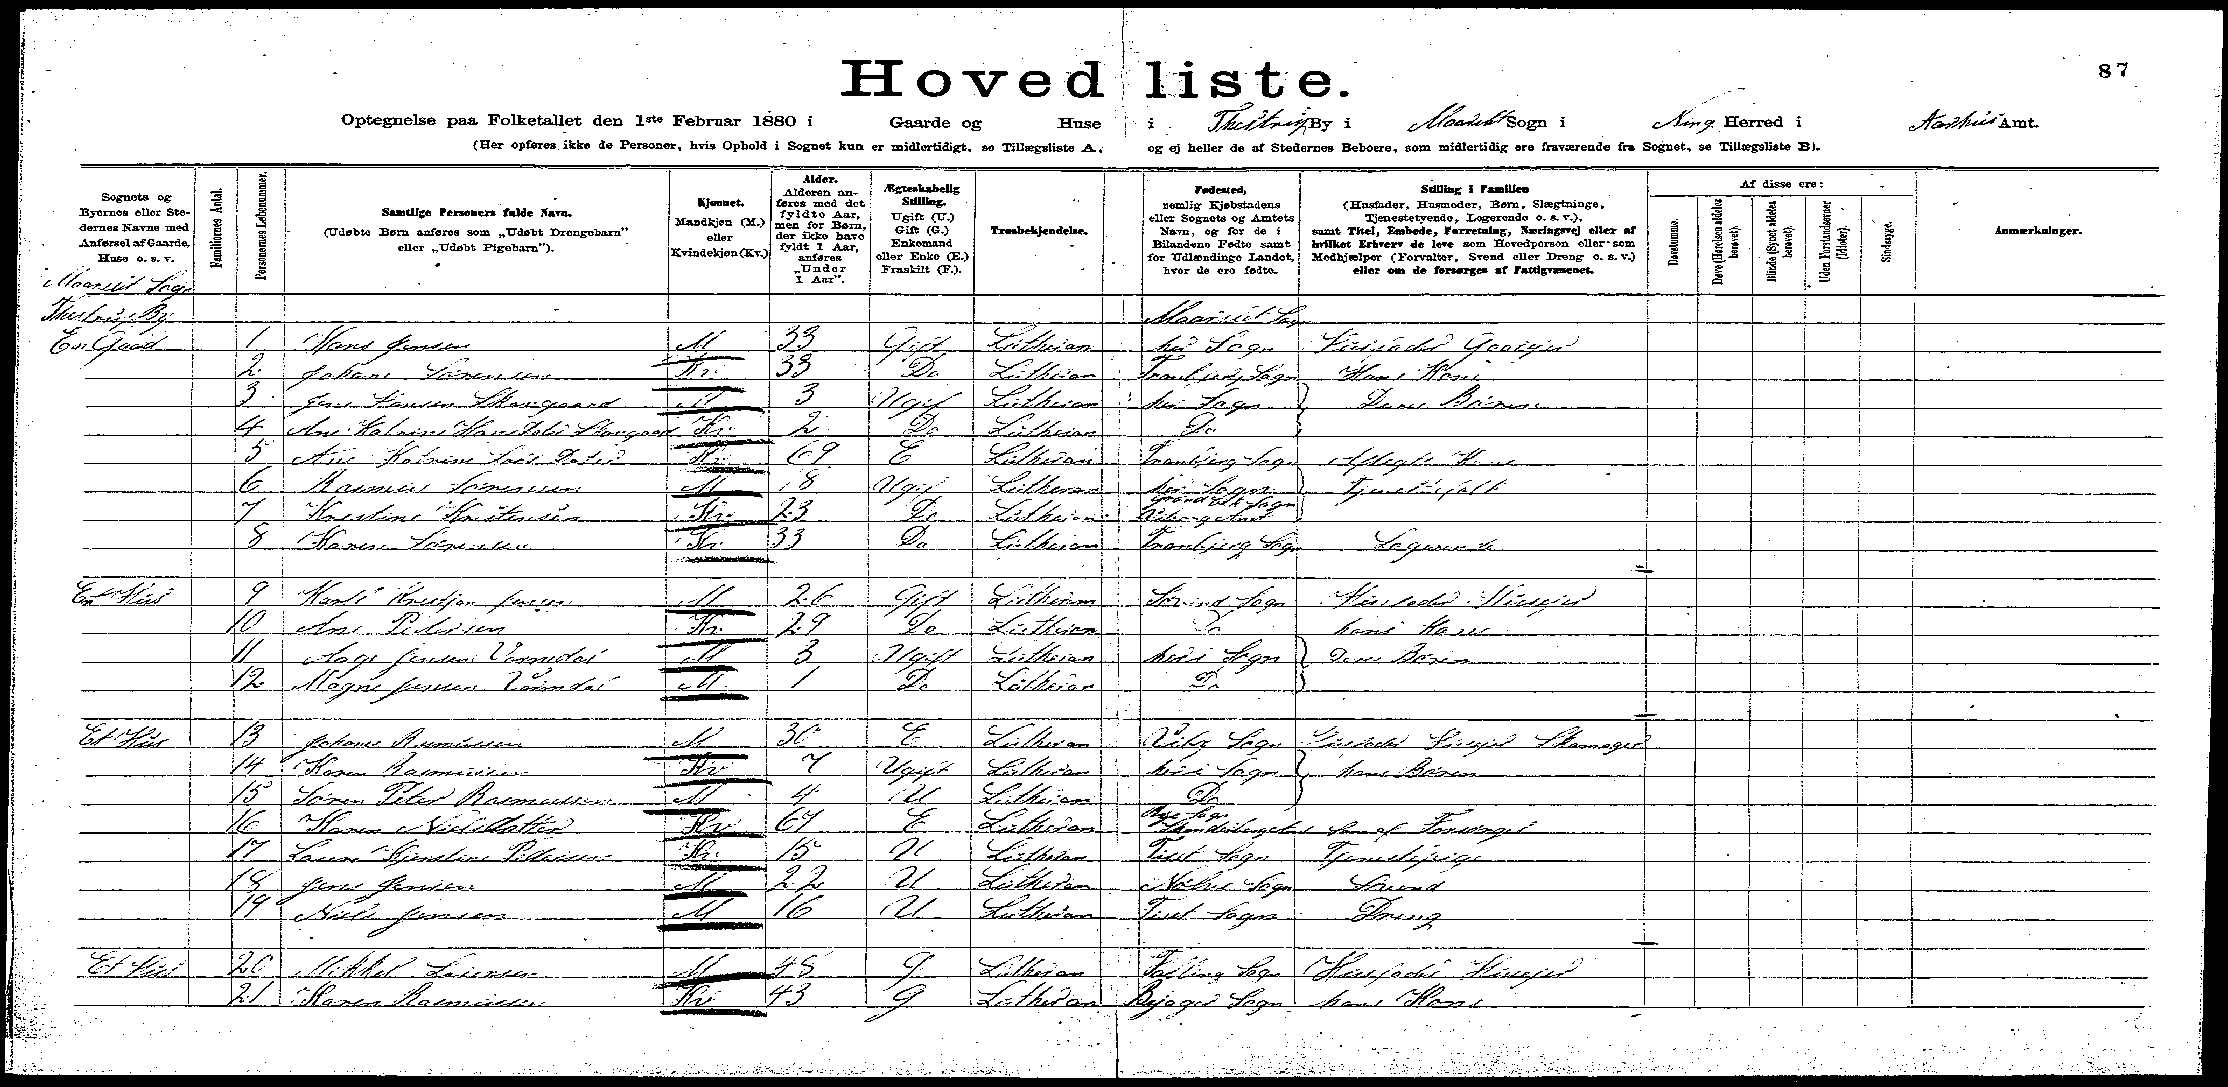 Hovedliste.
87
Optegnelse paa Folketallet den 1ste Februar 1880 i Gaarde og Huse i Thistrup By i Maarslet Sogn i Ning Herred i Aarhus Amt.
(Her opføres ikke de Personer, hvis Ophold i Sognet kun er midlertidigt, se Tillægsliste A, og ej heller de af Stedernes Beboere, som midlertidig ere fraværende fra Sognet, se Tillægsliste B).
Sognets og Byernes eller Stedernes Navne med Anførsel af Gaarde, Huse o. s. v.
Familiernes Antal.
Personernes Løbenummer.
Samtlige Personers fulde Navn.
(Udøbte Børn anføres som „Udøbt Drengebarn" eller „Udøbt Pigebarn").
Kjønnet.
Mandkjøn (M.) eller Kvindekjøn (Kv.)
Alder.
Alderen anføres med det fyldte Aar, men for Børn, der ikke have fyldt 1 Aar, anføres „Under 1 Aar".
Ægteskabelig Stilling.
Ugift (U.) Gift (G.) Enkemand eller Enke (E.) Fraskilt (F.).
Trosbekjendelse.
Fødested,
nemlig Kjøbstadens eller Sognets og Amtets Navn, og for de i Bilandene Fødte samt for Udlændinge Landet, hvor de ere fødte.
Stilling i Familien
(Husfader, Husmoder, Børn, Slægtninge, Tjenestetyende, Logerende o. s. v.), samt Titel, Embede, Forretning, Næringsvej eller af hvilket Erhverv de leve som Hovedperson eller som Medhjælper (Forvalter, Svend eller Dreng o. s. v.) eller om de forsørges af Fattigvæsenet.
Af disse ere:
Døvstumme.
Døve (Hørelsen aldeles berøvet).
Blinde (Synet aldeles berøvet).
Uden Forstandsevner (Idioter).
Sindssyge.
Anmærkninger.
Maarslet Sogn
Thistrup By Maarslet Sogn
En Gaard 1 Hans Jensen M 33 Gift Lutheran her i Sogn Husfader Gaarejer
2 Johane Sørensen Kv 33 Do Lutheran Tranbjerg Sogn Hans Kone
3 Jens Hansen Skovgaard M 3 Ugif Lutheran her i Sogn Deres Børn
4 Ane Katrine Hans Dater Skovgaard Kv 2 Do Lutheran Do
5 Ane Katrine Dater Kv 69 E Lutheran Tranbjerg Sogn Aftægts Kone
6 Rasmus Sørensen M 18 Ugif Lutheran her i Sogn Tjenestefolk
7 Kirstine Kristensen Kv 23 Do Lutheran Sogn Viborg Amt
8 Karen Sørensen Kv 33 Do Lutheran Tranbjerg Sogn Logerende
Et Hus 9 Kristjan Jensen M 26 Gift Lutheran Sogn Husfader Husejer
10 Ane Pedersen Kv 29 Do Lutheran Do hans Kone
11 Aage Jensen M 3 Ugift Lutheran her i Sogn Deres Børn
12 Magne Jensen M 1 Do Lutheran Do
Et Hus 13 Johanes Rasmussen M 30 E Lutheran Viby Sogn Husfader Husejer Skomager
14 Karen Rasmussen Kv 7 Ugift Lutheran her i Sogn hans Børn
15 Søren Peter Rasmussen M 4 U Lutheran Do
16 Karen Nielsdatter Kv 67 E Lutheran Sogn
17 Laura Kjerstine Pedersen Kv 15 U Lutheran Tiset Sogn Tjenestepige
18 Jens Jensen M 22 U Lutheran Sogn Svend
19 Niels Jensen M 16 U Lutheran Tiset Sogn Dreng
Et Hus 20 Mikkel Sørensen M 48 G Lutheran Falling Sogn Husfader Husejer
21 Karen Rasmussen Kv 43 G Lutheran Sogn hans Kone